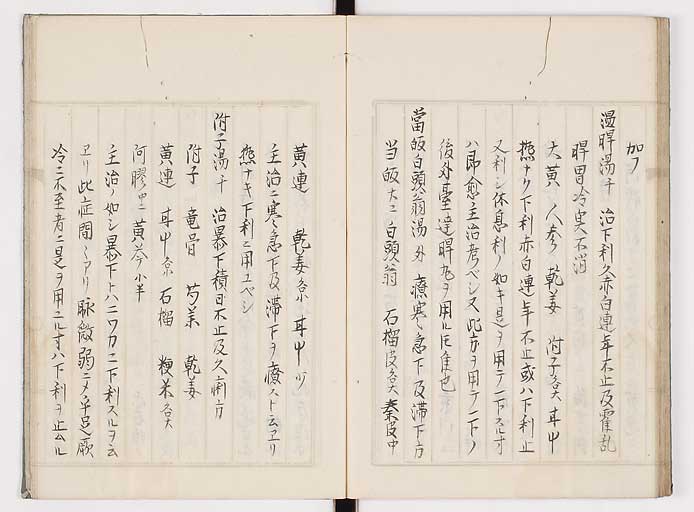 加フ
温脾湯千 治下利久赤白連年不止及霍乱
脾胃冷実不消
大黄 人参 乾姜 附子各大 甘中
熱ナク下利赤白連年不止或ハ下利止
又利シ休息利ノ如キ是ヲ用テ下スルオ
ハ即愈主治考ベシ又此方ヲ用テ下ノ
後外臺達脾丸ヲ用ル圧隹也
當皈白頭翁湯外 療寒急下及滞下方
当皈大 白頭翁 石榴皮各大 秦皮中
黄連 乾姜各 甘中 少
主治ニ寒急下及滞下ヲ療スト云ヱリ
熱ナキ下利ニ用ユベシ
附子湯千 治暴下積日不止及久痢方
附子 竜骨 芍薬 乾姜
黄連 甘中各 石榴 粳米各大
阿膠中 黄芩小半
主治ノ如シ暴下トハニワカニ下利スルヲ云
ヱリ此症間アリ脈微弱ニメ手足厥
冷ニ不至者ニ是ヲ用ユル寸ハ下利ヲ止ムル